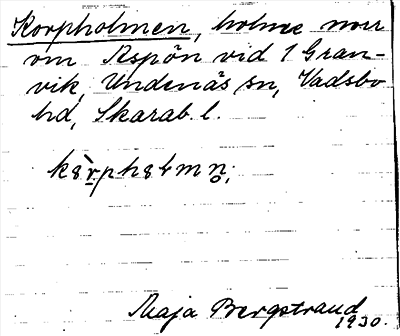 Korpholmen, holme norr
om Aspön vid 1 Gran-
vik, Undenäs sn, Vadsbo
hd, Skarab. l.
Maja Bergstrand
1930.